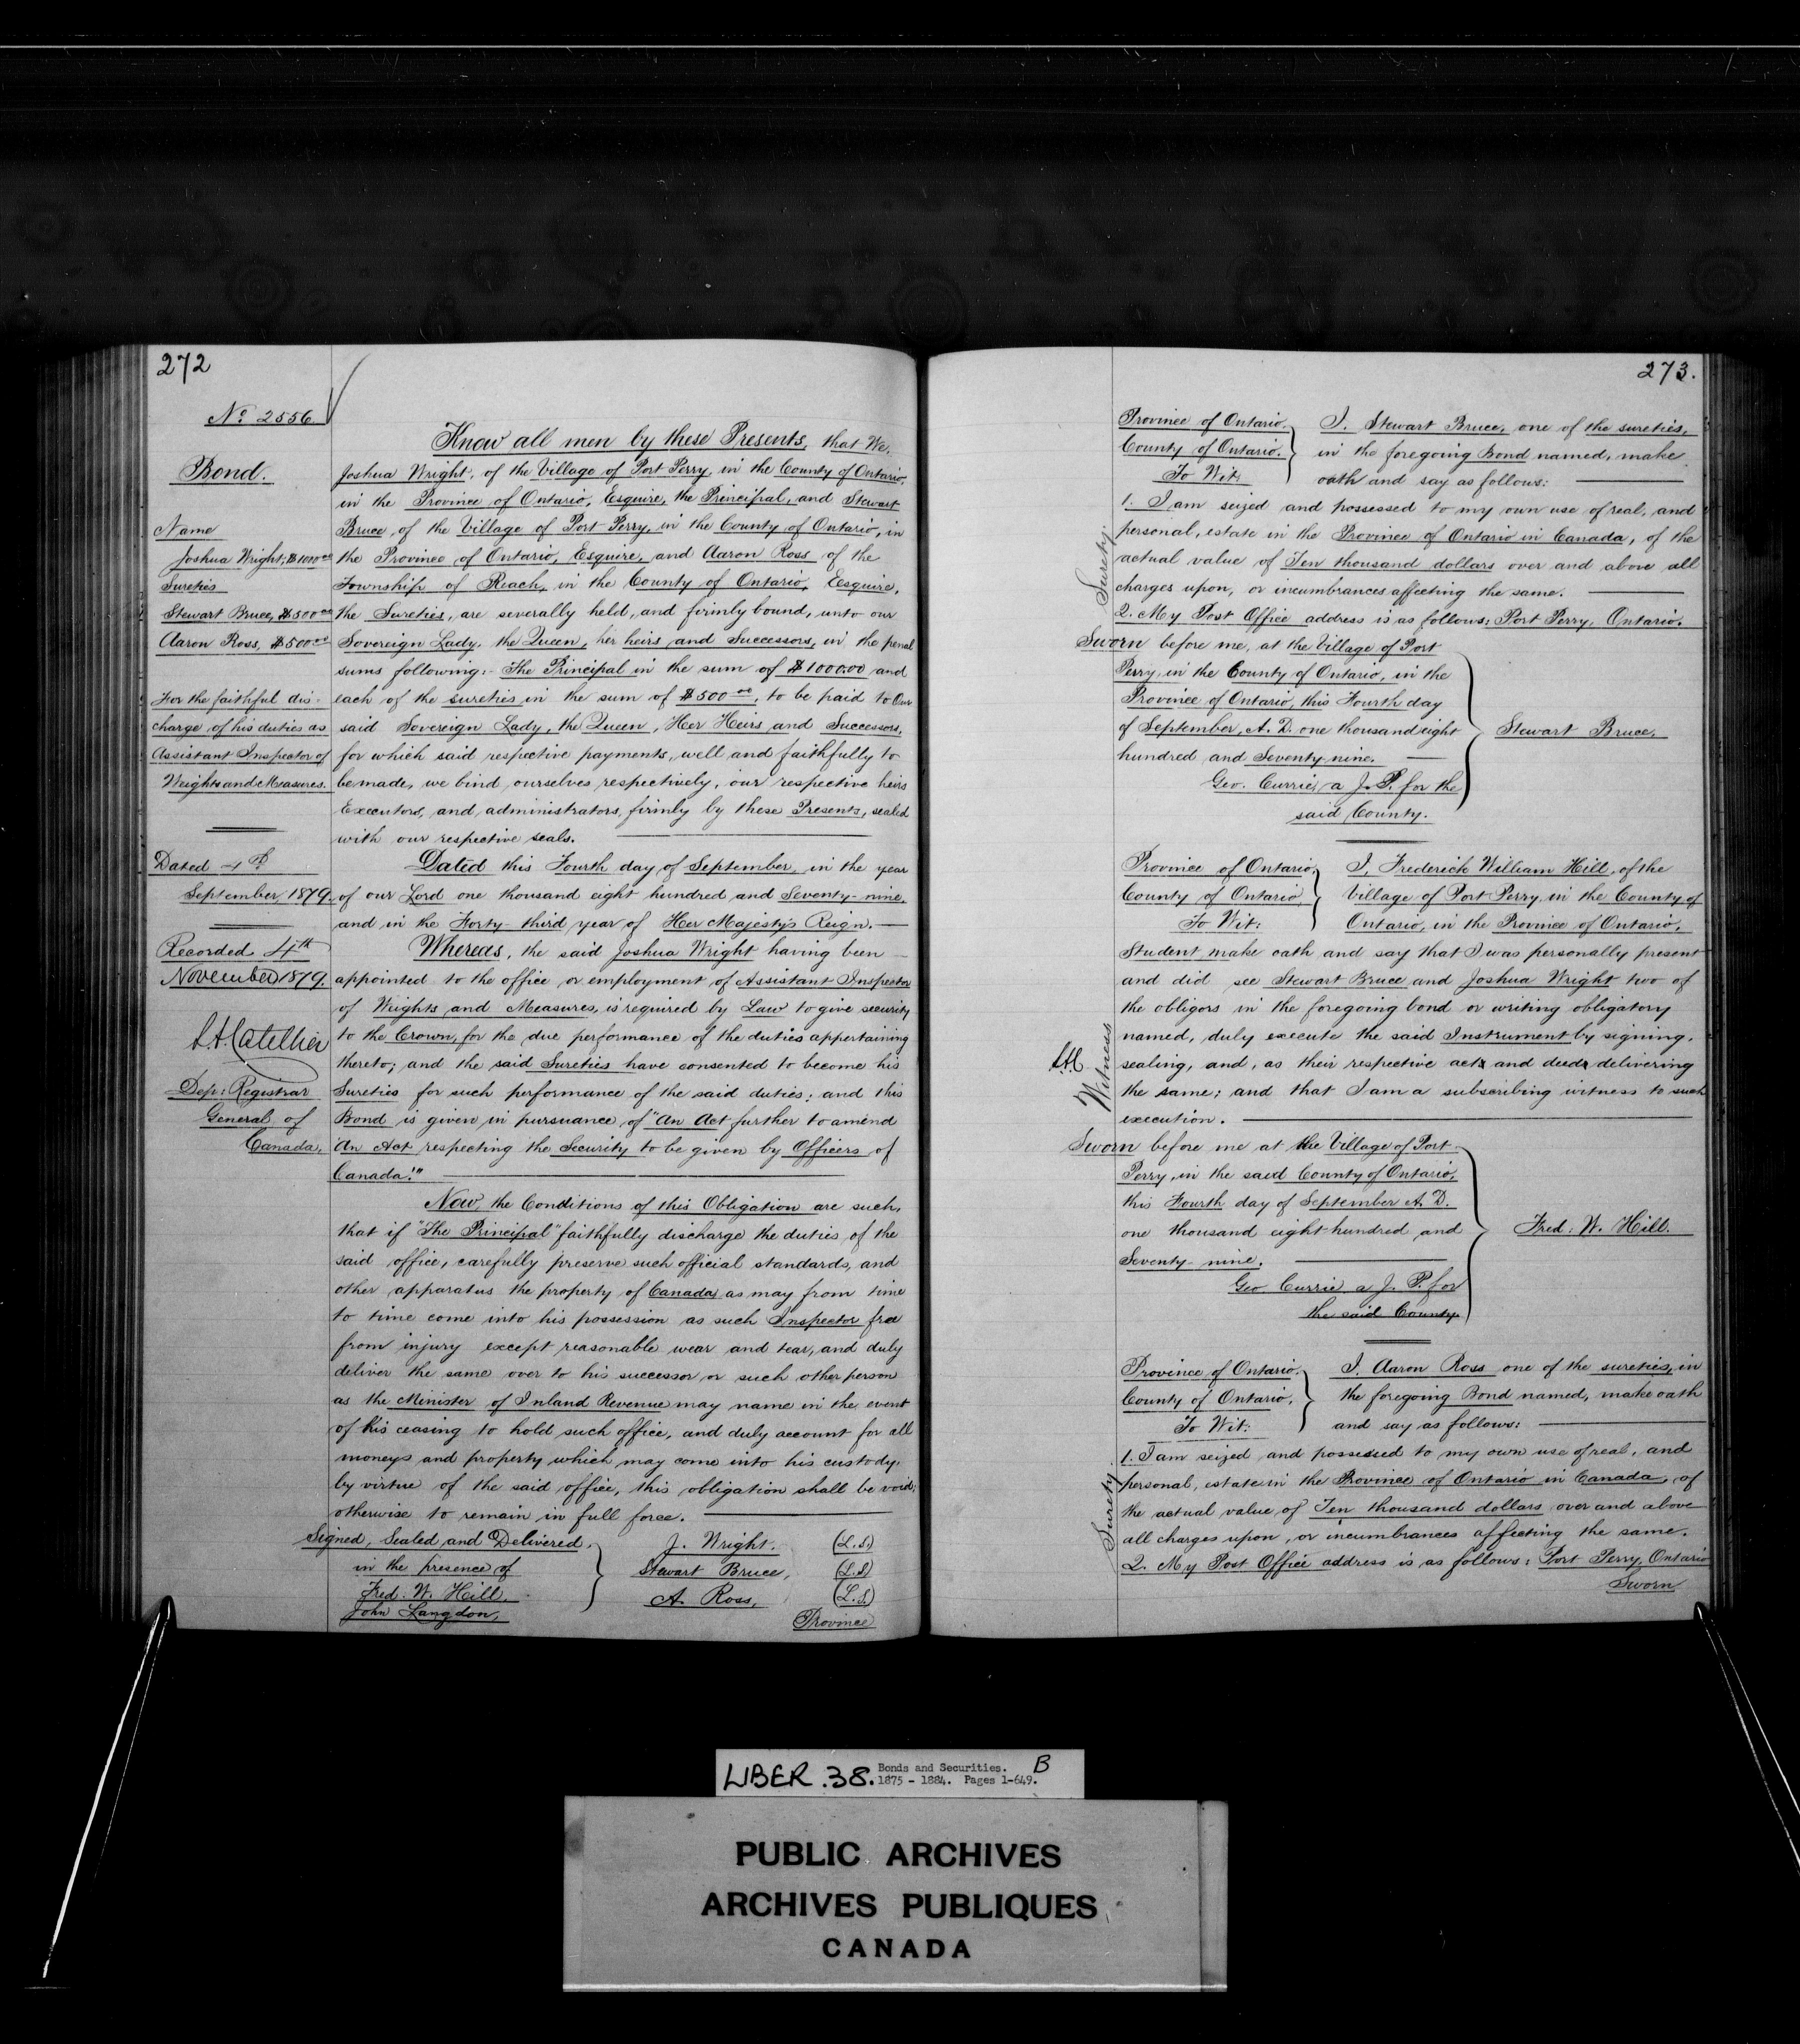 272
No. 2556
Bond.
Name
Joshua Wright, $1000.00
Sureties
Stewart Bruce, $500.00
Aaron Ross, $500.00
For the faithful dis-
charge of his duties as
Assistant Inspector of
Weights and Measures.
Dated 4th
September, 1879.
Recorded 4th
November 1879.
L.A. Catellier
Dep: Registrar
General of
Canada.
Know all men by these Presents, that We,
Joshua Wright, of the Village of Port Perry, in the County of Ontario,
in the Province of Ontario, Esquire, the Principal, and Stewart
Bruce, of the Village of Port Perry, in the County of Ontario, in
the Province of Ontario, Esquire, and Aaron Ross of the
Township of Reach, in the County of Ontario, Esquire,
the Sureties, are severally held, and firmly bound, unto our
Sovereign Lady, the Queen, her heirs and Successors, in the penal
sums following:- The Principal in the sum of $1000.00 and
each of the sureties in the sum of $500.00, to be paid to Our
said Sovereign Lady, the Queen, Her Heirs and Successors,
for which said respective payments, well and faithfully to
be made, we bind ourselves respectively, our respective heirs
Executors, and administrators, firmly by these Presents, sealed
with our respective seals.
Dated this Fourth day of September, in the year
of our Lord one thousand eight hundred and Seventy-nine,
and in the Forty-third year of Her Majesty's Reign.
Whereas, the said Joshua Wright having been
appointed to the office or employment of Assistant Inspector
of Weights and Measures, is required by Law to give security
to the Crown, for the due performance of the duties appertaining
thereto; and the said Sureties have consented to become his
Sureties for such performance of the said duties; and this
Bond is given in pursuance of "An Act further to amend
An Act respecting the Security to be given by Officers of
Canada."
Now, the Conditions of this Obligation are such,
that if "The Principal" faithfully discharge the duties of the
said office, carefully preserve such official standards, and
other apparatus the property of Canada, as may from time
to time come into his possession as such Inspector free
from injury except reasonable wear and tear, and duly
deliver the same over to his successor or such other person
as the Minister of Inland Revenue may name in the event
of his ceasing to hold such office, and duly account for all
moneys and property which may come into his custody,
by virtue of the said office, this obligation shall be void;
otherwise to remain in full force.
Signed, Sealed and Delivered, J. Wright. (L.S.)
in the presence of Stewart Bruce, (L.S)
Fred: W. Hill, A. Ross, (L.S.)
John Langdon,
Province
273.
Province of Ontario, I, Stewart Bruce, one of the sureties,
County of Ontario. in the foregoing Bond named, make
To Wit: oath and say as follows:
Surety.
1. I am seized and possessed to my own use of real, and
personal, estate in the Province of Ontario in Canada, of the
actual value of Ten thousand dollars over and above all
charges upon, or incumbrances affecting the same.
2. My Post Office address is as follows: Port Perry, Ontario.
Sworn before me, at the Village of Port
Perry, in the County of Ontario, in the
Province of Ontario, this Fourth day
of September, A. D. one thousand eight Stewart Bruce,
hundred and Seventy-nine.
Geo. Currie, a J. P. for the
said County.
Province of Ontario, I, Frederick William Hill, of the
County of Ontario, Village of Port Perry, in the County of
To Wit: Ontario, in the Province of Ontario,
Student make oath and say that I was personally present
and did see Stewart Bruce and Joshua Wright two of
the obligors in the foregoing bond or writing obligatory
Witness
named, duly execute the said Instrument by signing,
sealing, and, as their respective acts and deeds delivering
the same; and that I am a subscribing witness to such
execution.
Sworn before me at the Village of Port
Perry, in the said County of Ontario,
this Fourth day of September A. D.
one thousand eight-hundred and Fred: W. Hill.
Seventy-nine.
Geo Currie a J. P. for
the said County.
Province of Ontario. I, Aaron Ross one of the sureties, in
County of Ontario, the foregoing Bond named, make oath
To Wit: and say as follows:
Surety
1. I am seized and possessed to my own use of real, and
personal, estate in the Province of Ontario in Canada, of
the actual value of Ten thousand dollars over and above
all charges upon, or incumbrances affecting the same.
2. My Post Office address is as follows: Port Perry, Ontario
Sworn
LIBER .38. Bonds and Securities. B
1875 - 1884. Pages 1-649.
PUBLIC ARCHIVES
ARCHIVES PUBLIQUES
CANADA